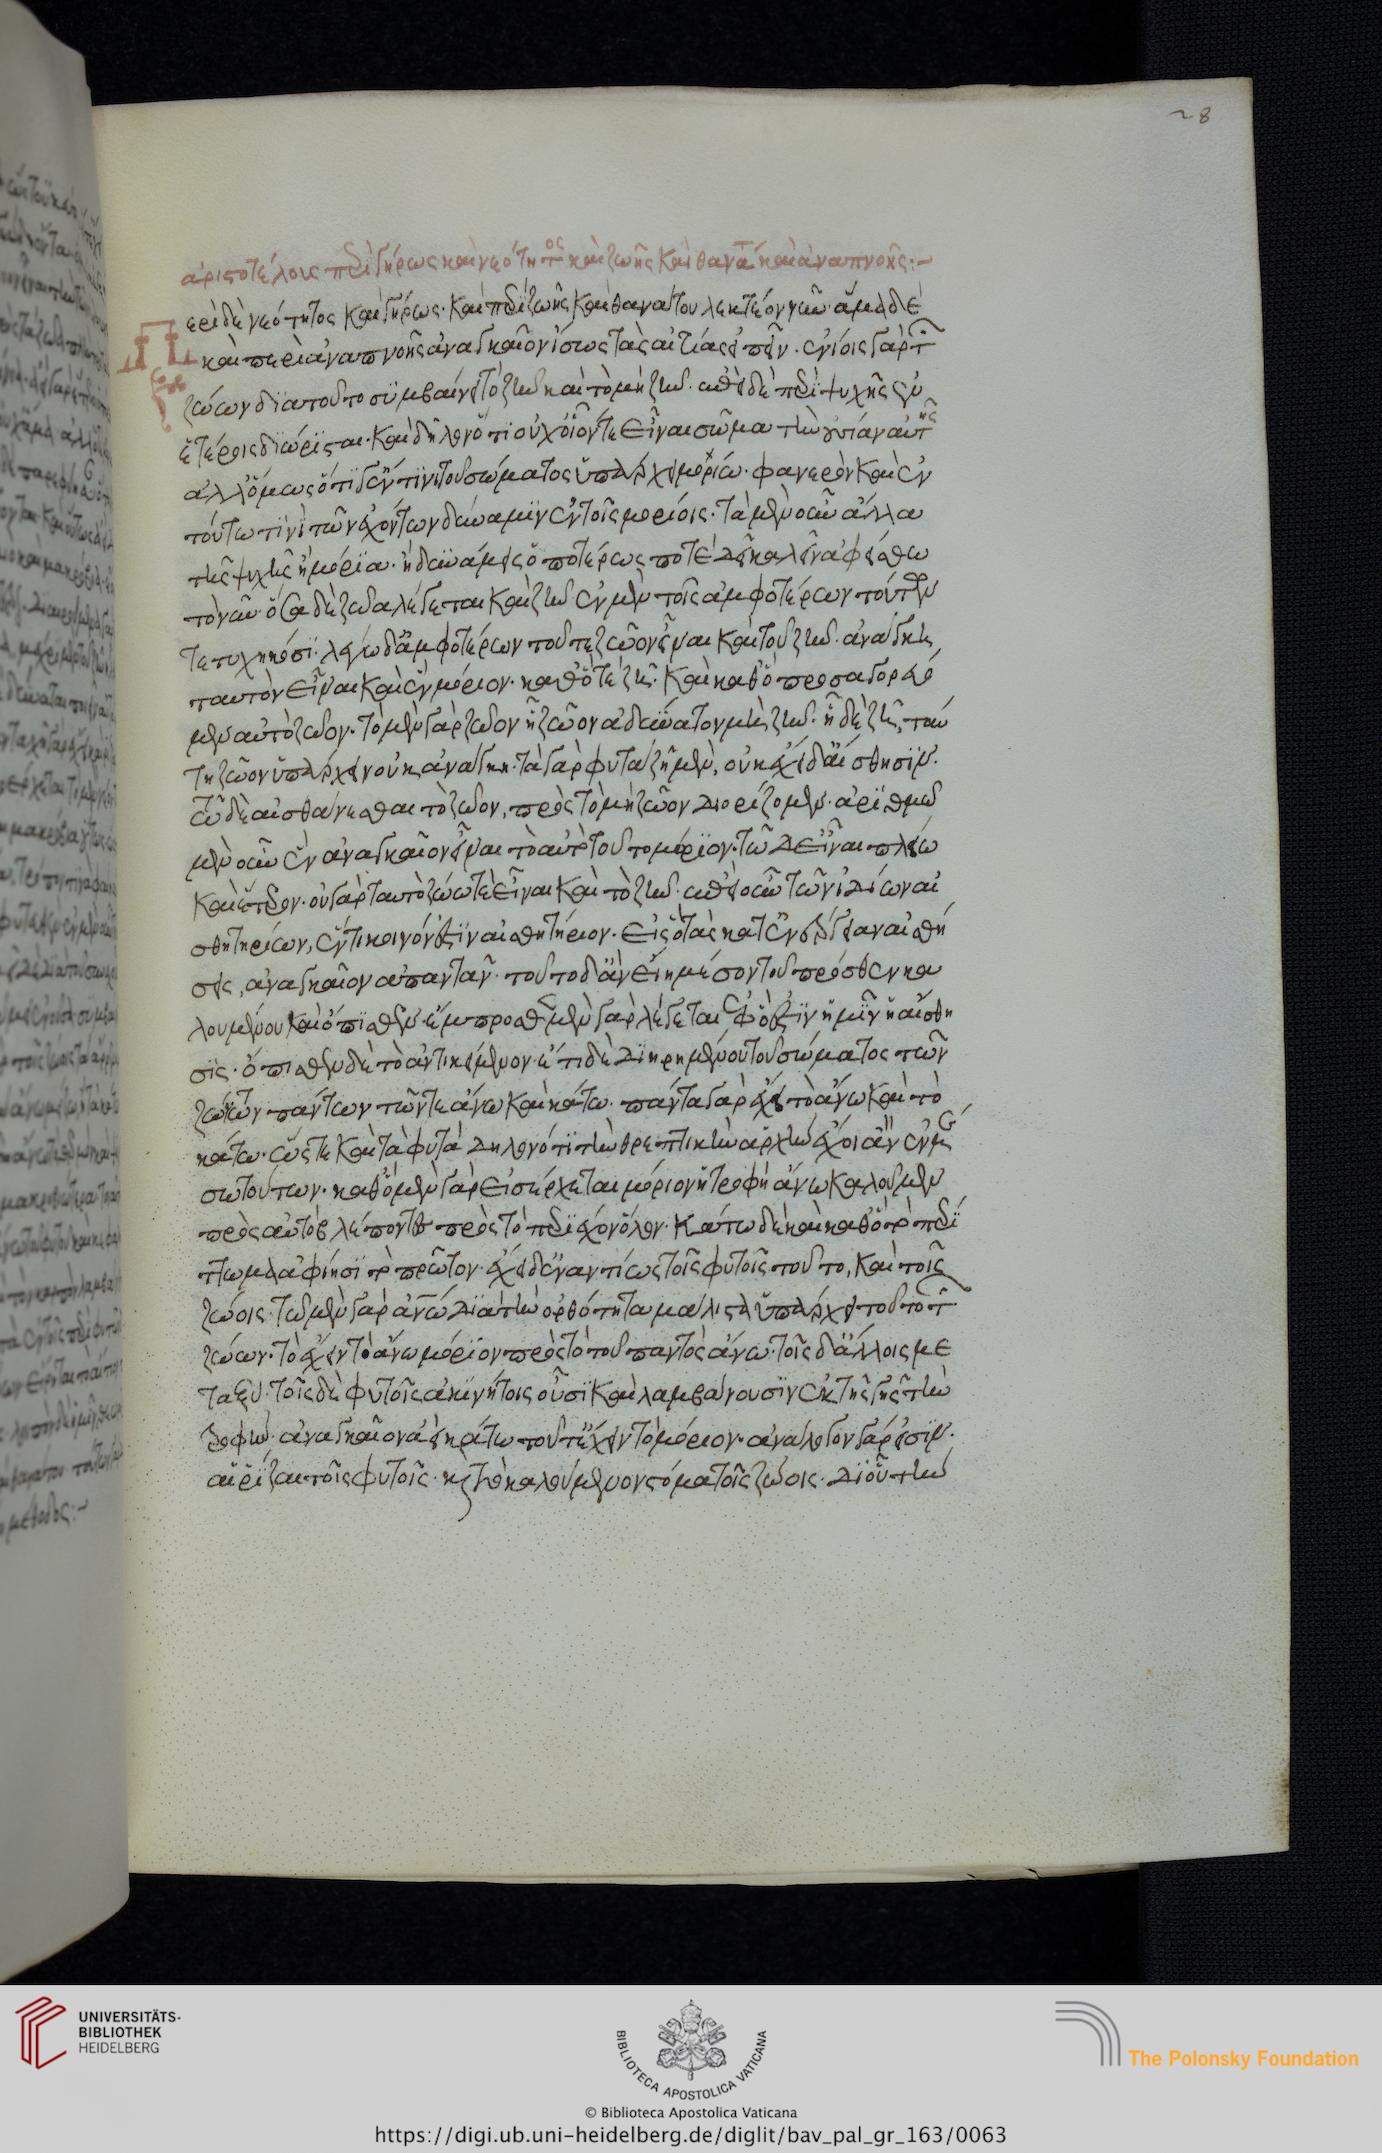 28
ἀριστοτέλους περὶ γήρως καὶ νεότητος καὶ ζωῆς καὶ θανάτου καὶ ἀναπνοῆς:-
Περὶ δὲ νεότητος καὶ γήρως· καὶ περὶ ζωῆς καὶ θανάτου λεκτέον νῦν· ἅμα δὲ
καὶ περὶ ἀναπνοῆς ἀναγκαῖον ἴσως τὰς αἰτίας εἰπεῖν· ἐνίοις γὰρ τῶν
ζώων διὰ τοῦτο συμβαίνει τὸ ζῆν καὶ τὸ μὴ ζῆν· ἐπεὶ δὲ περὶ ψυχῆς ἐν
ἑτέροις διώρισται· καὶ δῆλον ὅτι οὐχ οἷόν τε εἶναι σῶμα τὴν οὐσίαν αὐτῆς
ἀλλ' ὅμως ὅτι γ' ἔν τινι τοῦ σώματος ὑπάρχει μορίω· φανερὸν καὶ ἐν
τούτω τινὶ τῶν ἐχόντων δύναμιν ἐν τοῖς μορίοις· τὰ μὲν οὖν ἄλλα
τῆς ψυχῆς ἢ μόρια· ἢ δυνάμεις ὁποτέρως ποτὲ δεῖ καλεῖν ἀφείσθω
τὸ νῦν· ὅσα δὲ ζῶα λέγεται καὶ ζῆν ἐν μὲν τοῖς ἀμφοτέρων τούτων
τετυχηκόσι· λέγω δ' ἀμφοτέρων τοῦ τε ζῶον εἶναι καὶ τοῦ ζῆν· ἀνάγκη
ταυτὸν εἶναι καὶ ἓν μόριον· καθό τε ζῆ· καὶ καθὸ προσαγορεύο
μεν αὐτὸ ζῶον· τὸ μὲν γὰρ ζῶον ἧ ζῶον ἀδύνατον μὴ ζῆν· ἧ δὲ ζῆ, ταύ
τη ζῶον ὑπάρχειν οὐκ ἀνάγκη· τὰ γὰρ φυτὰ ζῆ μὲν, οὐκ ἔχει δ' αἴσθησιν·
τῶ δὲ αἰσθάνεσθαι τὸ ζῶον, πρὸς τὸ μὴ ζῶον διορίζομεν· ἀριθμῶ
μὲν οὖν ἓν ἀναγκαῖον εἶναι τὸ αὐτὸ τοῦτο μόριον· τῶ δ' εἶναι πλείω
καὶ ἕτερον· οὐ γὰρ ταυτὸ ζώω τὲ εἶναι καὶ τὸ ζῆν· ἐπεὶ οὖν τῶν ἰδίων αἰ
σθητηρίων, ἕν τι κοινόν ἐστιν αἰσθητήριον· εἰς ὃ τὰς κατ' ἐνέργειαν αἰσθή
σεις, ἀναγκαῖον ἀπαντᾶν· τοῦτο δ' ἂν εἴη μέσον τοῦ πρόσθεν κα
λουμένου καὶ ὄπισθεν· ἔμπροσθεν μὲν γὰρ λέγεται ἐφ' ὅ ἐστιν ἡμῖν ἡ αἴσθη
σις· ὄπισθεν δὲ τὸ ἀντικείμενον· ἔτι δὲ διῃρημένου τοῦ σώματος τῶν
ζώντων πάντων τῶ τε ἄνω καὶ κάτω· πάντα γὰρ ἔχει τὸ ἄνω καὶ τὸ
κάτω· ὥστε καὶ τὰ φυτὰ δῆλον ὅτι τὴν θρεπτικὴν ἀρχὴν ἔχοι ἂν ἐν μέ
σω τούτων· καθὸ μὲν γὰρ εἰσέρχεται μόριον ἡ τροφὴ ἄνω καλοῦμεν
πρὸς αὐτὸ βλέποντες πρὸς τὸ περιέχον ὅλον· κάτω δὲ καὶ καθὸ τὸ περί
τωμα ἀφίησι τὸ πρῶτον· ἔχει δ' ἐναντίως τοῖς φυτοῖς τοῦτο, καὶ τοῖς
ζώοις· τῶ μὲν γὰρ ἀνθρώπω διὰ τὴν ὀρθότητα μάλιστα ὑπάρχει τοῦτο τῶν
ζώων· τὸ ἔχειν τὸ ἄνω μόριον πρὸς τὸ τοῦ παντὸς ἄνω· τοῖς δ' ἄλλοις με
ταξύ· τοῖς δὲ φυτοῖς ἀκινήτοις οὖσι καὶ λαμβάνουσιν ἐκ τῆς γῆς τὴν
τροφὴν· ἀναγκαῖον ἀεὶ κάτω τοῦτ' ἔχειν τὸ μόριον· ἀνάλογον γάρ εἰσιν·
αἱ ῥίζαι τοῖς φυτοῖς· καὶ τὸ καλούμενον στόμα τοῖς ζώοις· δι' οὗ τὴν
UNIVERSITÄTS-
BIBLIOTHEK
HEIDELBERG
BIBLIOTECA APOSTOLICA VATICANA
The Polonsky Foundation
© Biblioteca Apostolica Vaticana
https://digi.ub.uni-heidelberg.de/diglit/bav_pal_gr_163/0063